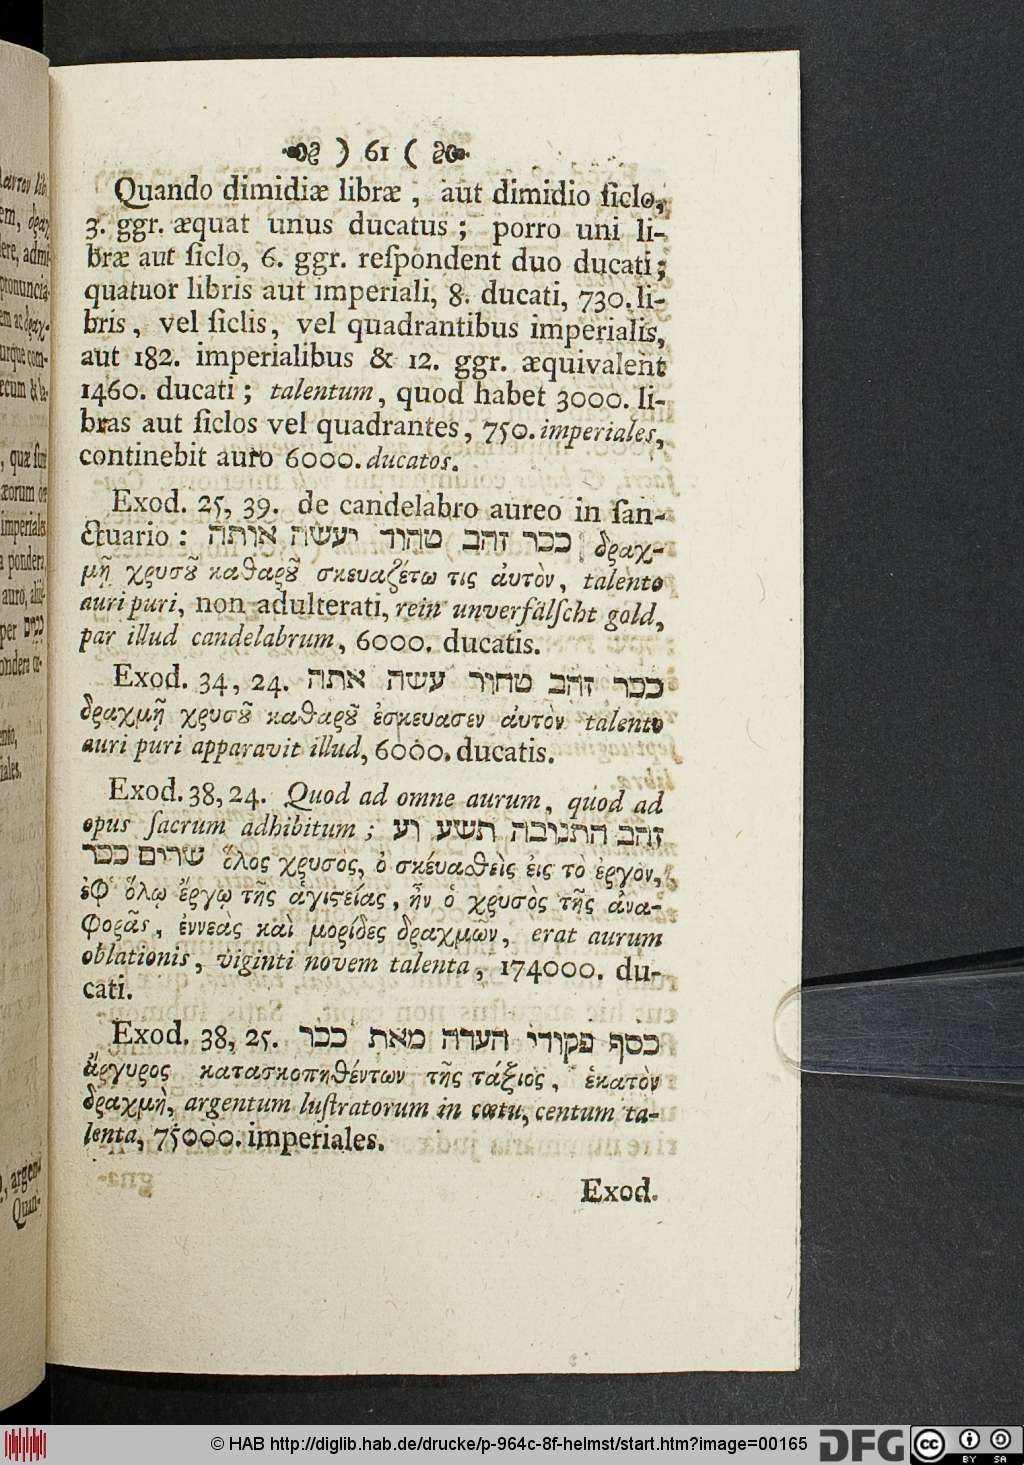 ) 61 (
Quando dimidiæ libræ, aut dimidio ſiclo,
3. ggr. æquat unus ducatus; porro uni li-
bræ aut ſiclo, 6. ggr. reſpondent duo ducati;
quatuor libris aut imperiali, 8. ducati, 730. li-
bris, vel ſiclis, vel quadrantibus imperialis,
aut 182. imperialibus & 12. ggr. æquivalent
1460. ducati; talentum, quod habet 3000. li-
bras aut ſiclos vel quadrantes, 750. imperiales,
continebit auro 6000. ducatos.
Exod. 25, 39. de candelabro aureo in ſan-
ctuario: ככר זהב טהור יעשה אותה δραχ-
μῇ χρυσȣ͂ καθαρȣ͂ σκευαζέτω τις ἀυτὸν, talento
auri puri, non adulterati, rein unverfälſcht gold,
par illud candelabrum, 6000. ducatis.
Exod. 34, 24. ככר זהב טחור עשה אתה
δραχμῇ χρυσȣ͂ καθαρȣ͂ ἐσκευασεν ἀυτὸν talento
auri puri apparavit illud, 6000. ducatis.
Exod. 38, 24. Quod ad omne aurum, quod ad
opus ſacrum adhibitum; זהב התנובה תשע וע
שרים ככר ὅλος χρυσὸς, ὁ σκέυαθεὶς ἐις τὸ ἐργὸν,
ἐφ᾽ ὅλῳ ἔργῳ τῆς ἁγιςείας, ἦν ὁ χρυσὸς τῆς ἀνα-
φορᾶς, ἐννεὰς καὶ μορίδες δραχμῶν, erat aurum
oblationis, viginti novem talenta, 174000. du-
cati.
Exod. 38, 25. כסף פקודי הערה מאת ככר
ἄργυρος κατασκοπηθέντων τῆς τάξιος, ἑκατὸν
δραχμὴ, argentum luſtratorum in cœtu, centum ta-
lenta, 75000. imperiales.
Exod.
© HAB http://diglib.hab.de/drucke/p-964c-8f-helmst/start.htm?image=00165
DFG
cc
BY SA